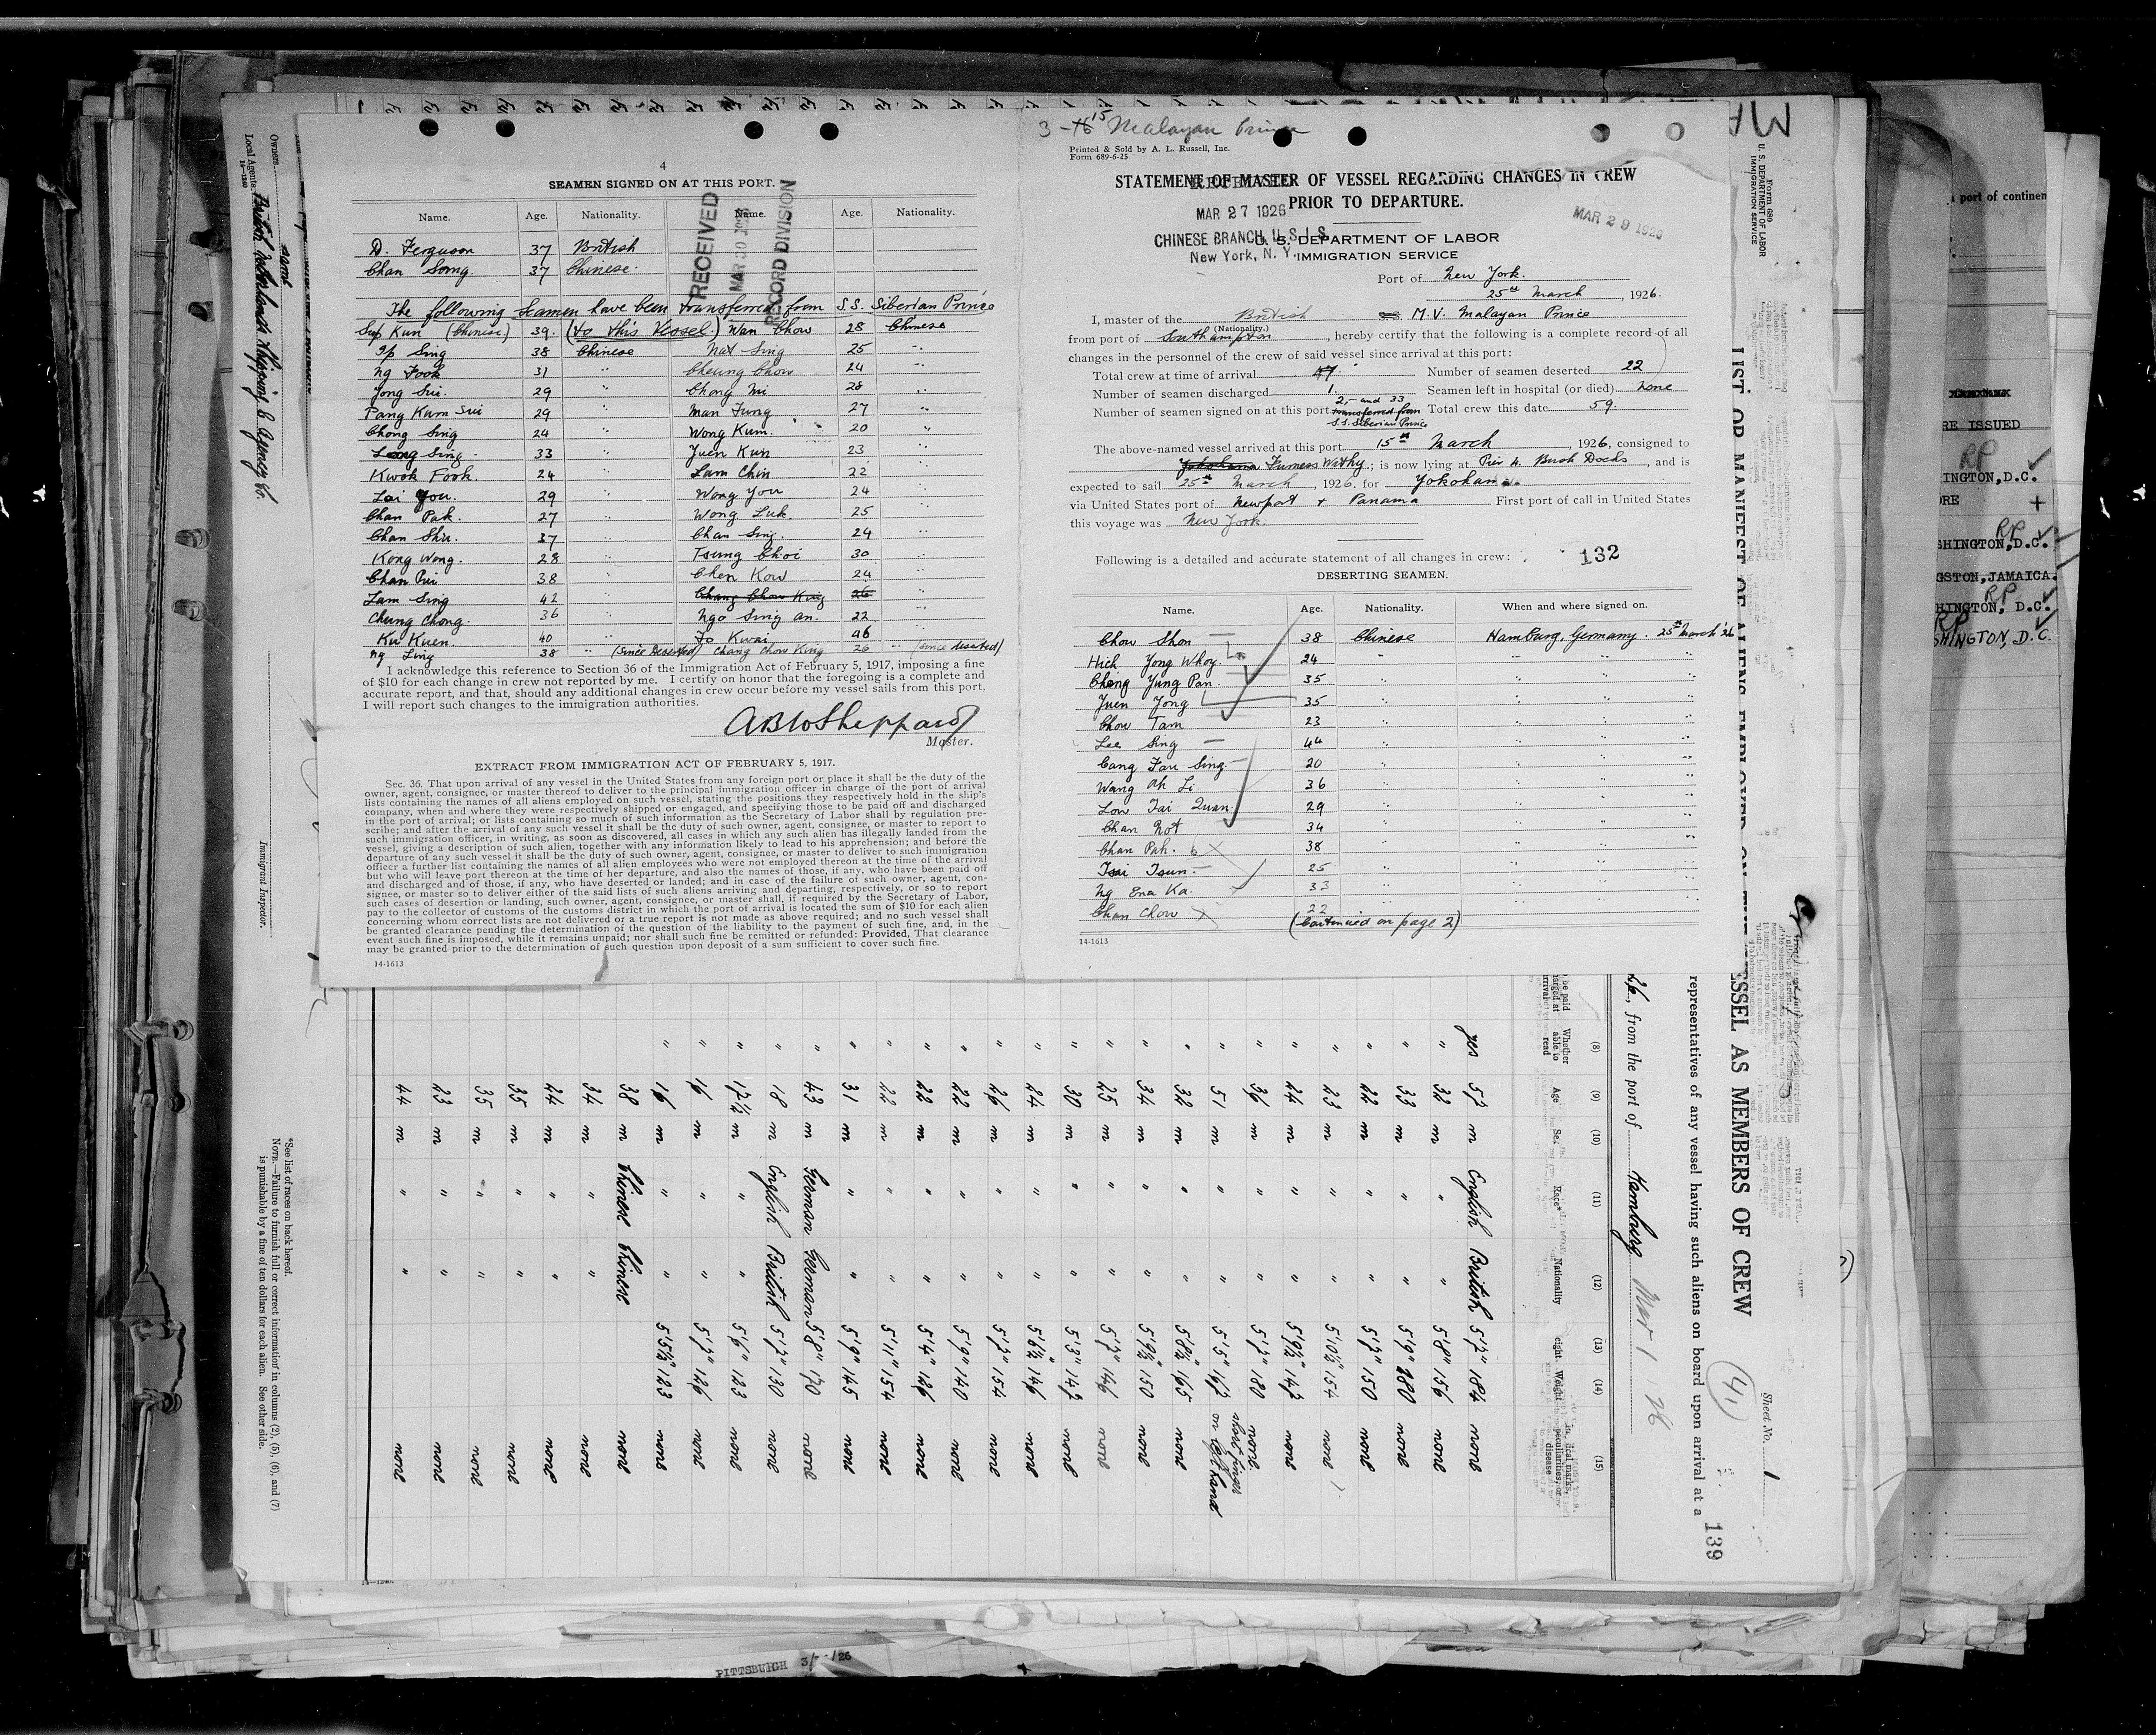 4
SEAMEN SIGNED ON AT THIS PORT.
Name. Age. Nationality. Name. Age. Nationality.
D. Ferguson 37 British
Chan Song. 37 Chinese.
The following seamen have been transferred from S.S. Siberian Prince
Sup Kun (Chinese) 39. (to this Vessel.) Wan Chow 28 Chinese
Ip Sing 38 Chinese Nat Sing 25 "
Ng Fook 31 " Cheung Chow 24
Jong Sui 29 " Chong Mi 28
Pang Kum Sui 29 " Man Fung 27 "
Chong Sing 24 " Wong Kum. 20 "
Leong Sing 33 " Juen Kun 23 "
Kwok Fook. 24 " Lam Chin 22 "
Lai You. 29 " Wong You 24 "
Chan Pak. 27 " Wong Luk. 25 "
Chan Shu. 37 " Chan Sing. 24 "
Kong Wong. 28 " Tsung Choi 30 "
Chan Pui 38 " Chen Kow 24 "
Lam Sing 42 " Chang Chow King 26 "
Chung Chong. 36 " Ngo Sing an. 22 "
Ku Kuen. 40 " Jo Kwai 46 "
Ng Ling 38 " (Since Deserted) Chang Chow King 26 " (since deserted)
I acknowledge this reference to Section 36 of the Immigration Act of February 5, 1917, imposing a fine
of $10 for each change in crew not reported by me. I certify on honor that the foregoing is a complete and
accurate report, and that, should any additional changes in crew occur before my vessel sails from this port,
I will report such changes to the immigration authorities.
ABWSheppard
Master.
EXTRACT FROM IMMIGRATION ACT OF FEBRUARY 5, 1917.
Sec. 36. That upon arrival of any vessel in the United States from any foreign port or place it shall be the duty of the
owner, agent, consignee, or master thereof to deliver to the principal immigration officer in charge of the port of arrival
lists containing the names of all aliens employed on such vessel, stating the positions they respectively hold in the ship's
company, when and where they were respectively shipped or engaged, and specifying those to be paid off and discharged
in the port of arrival; or lists containing so much of such information as the Secretary of Labor shall by regulation pre-
scribe; and after the arrival of any such vessel it shall be the duty of such owner, agent, consignee, or master to report to
such immigration officer, in writing, as soon as discovered, all cases in which any such alien has illegally landed from the
vessel, giving a description of such alien, together with any information likely to lead to his apprehension; and before the
departure of any such vessel it shall be the duty of such owner, agent, consignee, or master to deliver to such immigration
officer a further list containing the names of all alien employees who were not employed thereon at the time of the arrival
but who will leave port thereon at the time of her departure, and also the names of those, if any, who have been paid off
and discharged and of those, if any, who have deserted or landed; and in case of the failure of such owner, agent, con-
signee, or master so to deliver either of the said lists of such aliens arriving and departing, respectively, or so to report
such cases of desertion or landing, such owner, agent, consignee, or master shall, if required by the Secretary of Labor,
pay to the collector of customs of the customs district in which the port of arrival is located the sum of $10 for each alien
concerning whom correct lists are not delivered or a true report is not made as above required; and no such vessel shall
be granted clearance pending the determination of the question of the liability to the payment of such fine, and, in the
event such fine is imposed, while it remains unpaid; nor shall such fine be remitted or refunded: Provided, That clearance
may be granted prior to the determination of such question upon deposit of a sum sufficient to cover such fine.
14-1613
RECEIVED
MAR 30 1926
RECORD DIVISION
3-15 Malayan Prince
Printed & Sold by A. L. Russell, Inc.
Form 689-6-25
STATEMENT OF MASTER OF VESSEL REGARDING CHANGES IN CREW
PRIOR TO DEPARTURE.
MAR 27 1926
MAR 29 1926
CHINESE BRANCH, U.S.I.S.
New York, N. Y.
U. S. DEPARTMENT OF LABOR
IMMIGRATION SERVICE
Port of New York.
25th March, 1926.
I, master of the British M.V. Malayan Prince
(Nationality.)
from port of Southampton, hereby certify that the following is a complete record of all
changes in the personnel of the crew of said vessel since arrival at this port:
Total crew at time of arrival 47 Number of seamen deserted 22
Number of seamen discharged 1. Seamen left in hospital (or died) None
Number of seamen signed on at this port 2, and 33 transferred from S.S. Siberian Prince Total crew this date 59.
The above-named vessel arrived at this port 15th March, 1926, consigned to
Yokohama Furness Withy; is now lying at Pier 4. Bush Docks, and is
expected to sail 25th March, 1926. for Yokohama
via United States port of Newport + Panama First port of call in United States
this voyage was New York.
Following is a detailed and accurate statement of all changes in crew:
132
DESERTING SEAMEN.
Name. Age. Nationality. When and where signed on.
Chow Shon 38 Chinese Hamburg, Germany. 25th March '26
Hich Yong Whoy. 24 " " " "
Cheng Jung Pan. 35 " " " "
Juen Jong 35 " " " "
Chow Tam 23 " " " "
Lee Sing 44 " " " "
Cang Fau Sing. 20 " " " "
Wang Ah Li 36 " " " "
Low Tai Quan. 29 " " " "
Chan Not 34 " " " "
Chan Pak. 38 " " " "
Tsai Tsun. 25 " " " "
Ng Ena Ka. 33 " " " "
Chan Chow 22
(Continued on page 2)
14-1613
Form 689
U. S. DEPARTMENT OF LABOR
IMMIGRATION SERVICE
Sheet No. 1
139
(41)
LIST OR MANIFEST OF ALIENS EMPLOYED ON THE VESSEL AS MEMBERS OF CREW
representatives of any vessel having such aliens on board upon arrival at a
from the port of Hamburg Mar 1 26
(8) (9) (10) (11) (12) (13) (14) (15)
Whether able to read Age Race* Nationality Weight
yes 57 m English British 5'7" 184 none
" 32 m " " 5'8" 156 none
" 33 m " " 5'9" 280 none
" 22 m " " 5'7" 150 none
" 23 m " " 5'10½" 154 none
" 24 m " " 5'9½" 147 none
" 36 m " " 5'7" 180 none.
" 51 m " " 5'5" 167 short finger on left hand
" 32 m " " 5'8½" 165 none
" 34 m " " 5'9½" 150 none
" 25 m " " 5'7" 146 none
" 30 m " " 5'3" 147 none
" 24 m " " 5'6½" 146 none
" 26 m " " 5'7" 154 none
" 22 m " " 5'9" 140 none
" 22 m " " 5'4" 126 none
" 22 m " " 5'11" 154 none
" 31 m " " 5'9" 145 none
" 43 m German German 5'8" 170 none
" 18 m English British 5'7" 130 none
" 17½ m " " 5'6" 123 none
" 16 m " " 5'7" 126 none
" 16 m " " 5'5½" 123 none
38 m Chinese Chinese none
34 m " " none
24 m " " none
35 m " " none
35 m " " none
23 m " " none
44 m " " none
Owners Same
Local Agents
14-1240
Immigrant Inspector.
*See list of races on back hereof.
NOTE.—Failure to furnish full or correct information in columns (2), (5), (6), and (7)
is punishable by a fine of ten dollars for each alien. See other side.
port of continen
RE ISSUED
RP
INGTON, D.C.
ORE +
RP
SHINGTON, D.C.
GSTON, JAMAICA.
RP
HINGTON, D.C.
RP
SHINGTON, D.C.
PITTSBURGH